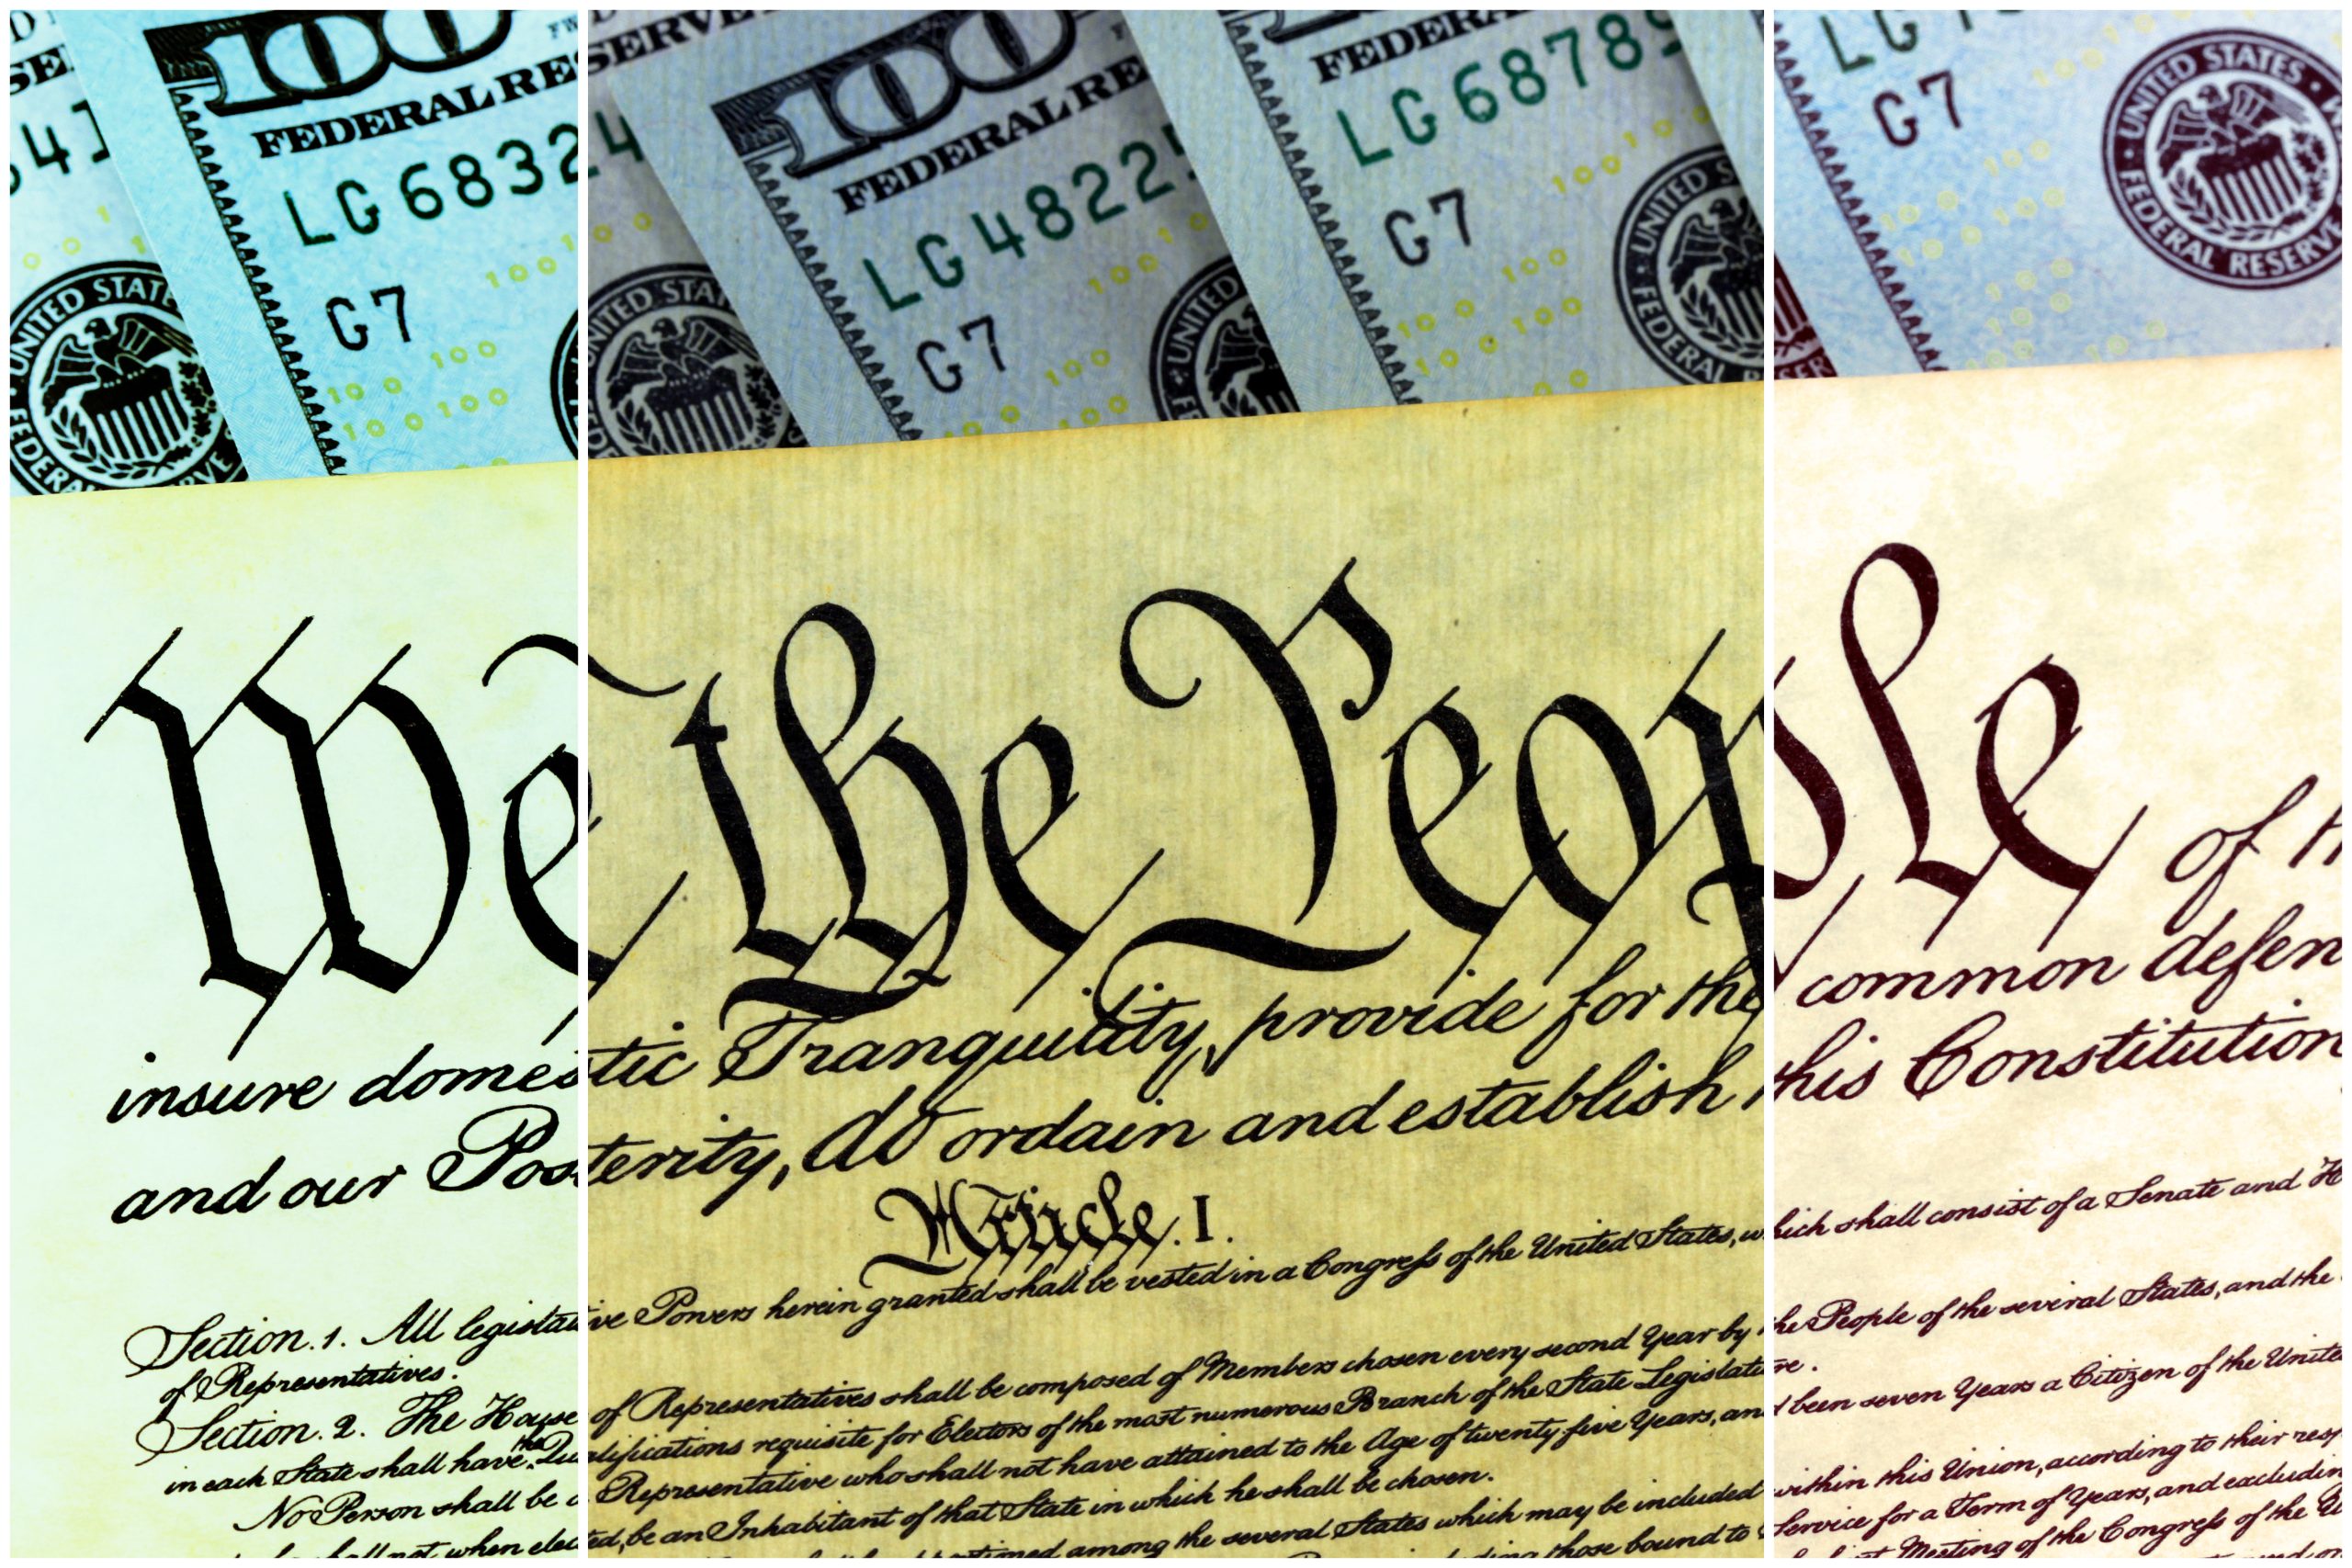 100
FEDERAL RE
LG 6832
G7
UNITED STAT
FEDERA
100
FEDERAL RE
LG 4822
G7
UNITED STA
FEDERA
LG 6878
G7
UNITED
FEDERAL
G7
UNITED STATES
FEDERAL RESERVE
We the People of
insure domestic Tranquility, provide for the common defen
and our Posterity, do ordain and establish this Constitution
Article. I.
Section. 1. All legislative Powers herein granted shall be vested in a Congress of the United States, which shall consist of a Senate and H
of Representatives.
Section. 2. The House of Representatives shall be composed of Members chosen every second Year by the People of the several States, and the
in each State shall have the Qualifications requisite for Electors of the most numerous Branch of the State Legislature.
No Person shall be a Representative who shall not have attained to the Age of twenty five Years, and been seven Years a Citizen of the Unite
shall not, when elected, be an Inhabitant of that State in which he shall be chosen.
among the several States which may be included within this Union, according to their resp
those bound to Service for a Term of Years, and excludin
Meeting of the Congress of the U